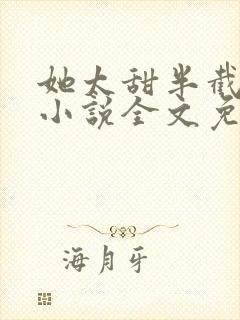 她太甜半截
小说全文免
海月牙